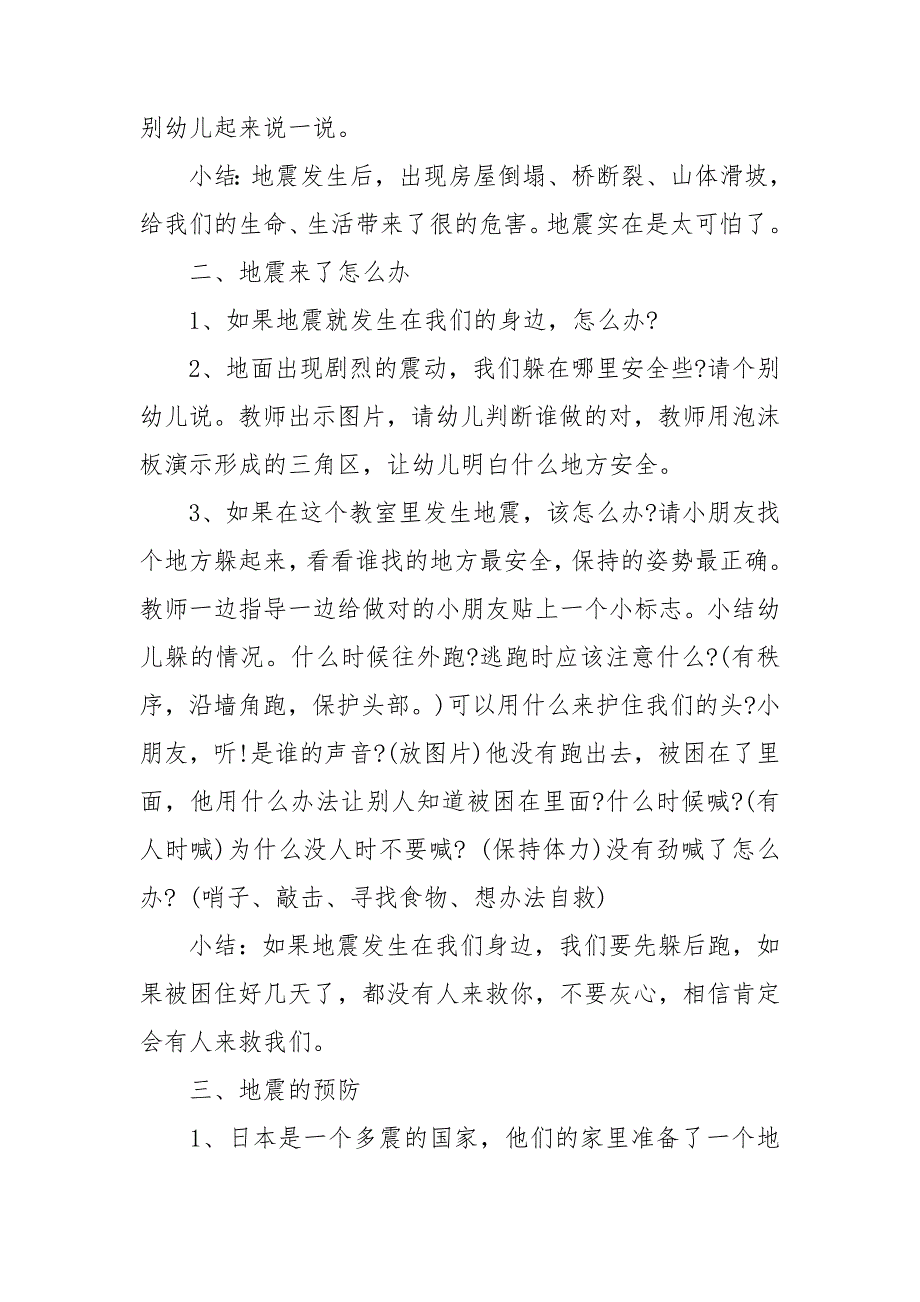 别幼儿起来说一说。
小结:地震发生后，出现房屋倒塌、桥断裂、山体滑坡，
给我们的生命、生活带来了很的危害。地震实在是太可怕了。
二、地震来了怎么办
1、如果地震就发生在我们的身边，怎么办?
2、地面出现剧烈的震动，我们躲在哪里安全些?请个别
幼儿说。教师出示图片，请幼儿判断谁做的对，教师用泡沫
板演示形成的三角区，让幼儿明白什么地方安全。
3、如果在这个教室里发生地震，该怎么办?请小朋友找
个地方躲起来，看看谁找的地方最安全，保持的姿势最正确。
教师一边指导一边给做对的小朋友贴上一个小标志。小结幼
儿躲的情况。什么时候往外跑?逃跑时应该注意什么?(有秩
序，沿墙角跑，保护头部。)可以用什么来护住我们的头?小
朋友，听!是谁的声音?(放图片)他没有跑出去，被困在了里
面，他用什么办法让别人知道被困在里面?什么时候喊?(有
人时喊)为什么没人时不要喊? (保持体力)没有劲喊了怎么
办? (哨子、敲击、寻找食物、想办法自救)
小结：如果地震发生在我们身边，我们要先躲后跑，如
果被困住好几天了，都没有人来救你，不要灰心，相信肯定
会有人来救我们。
三、地震的预防
1、日本是一个多震的国家，他们的家里准备了一个地